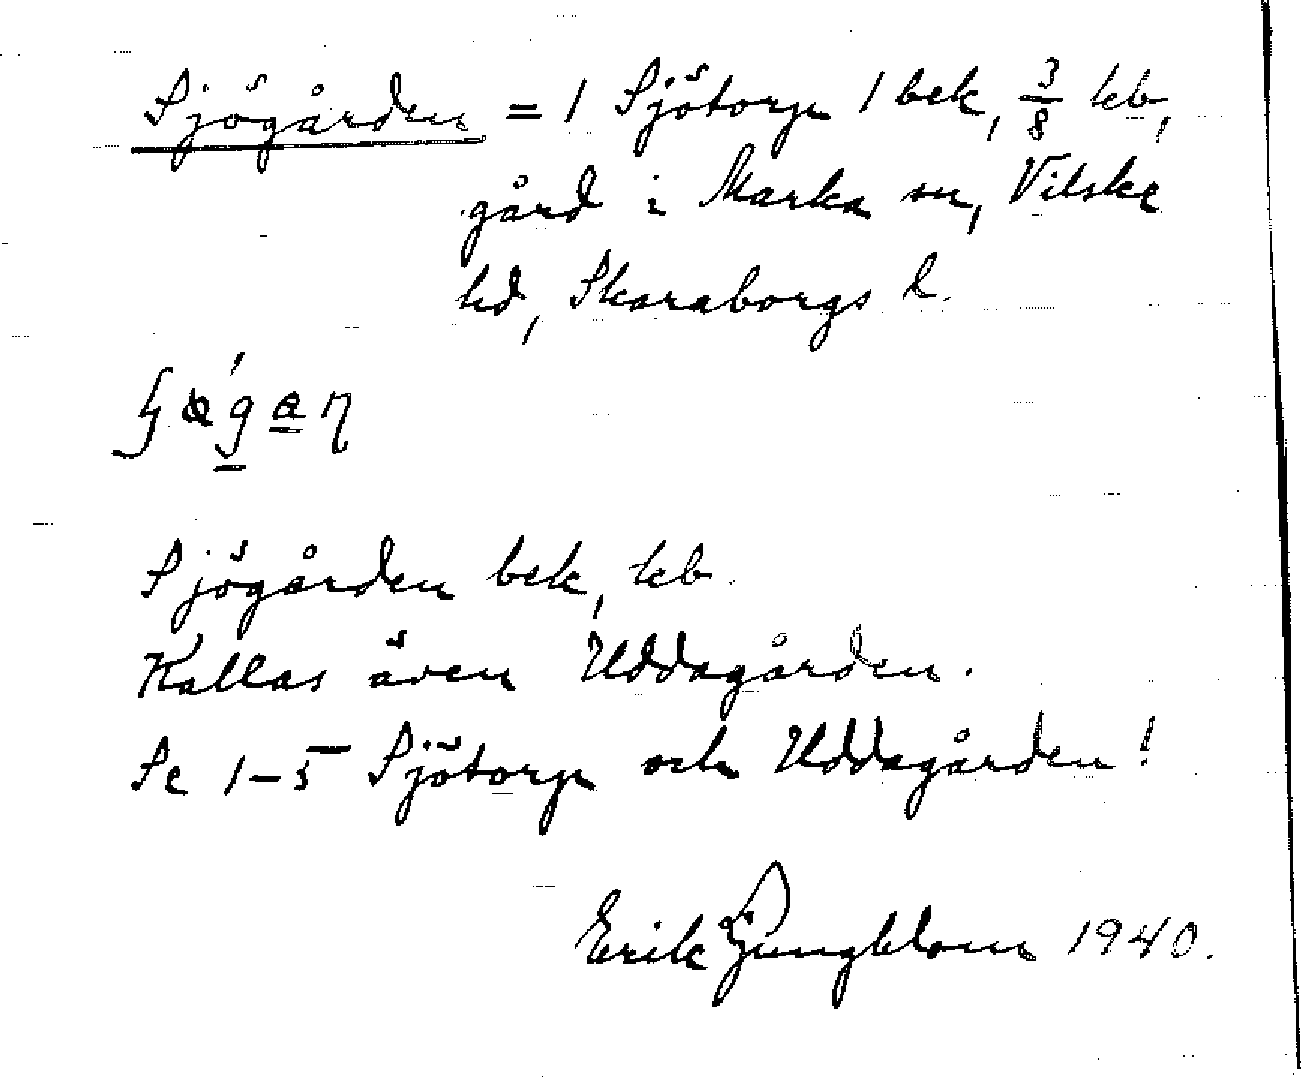 Sjögården = 1 Sjötorp 1 bek, 3/8 kb,
gård i Marka sn, Vilske
hd, Skaraborgs l.
Sjögården bek, kb.
Kallas även Uddagården.
Se 1–5 Sjötorp och Uddagården!
Erik Ljungblom 1940.